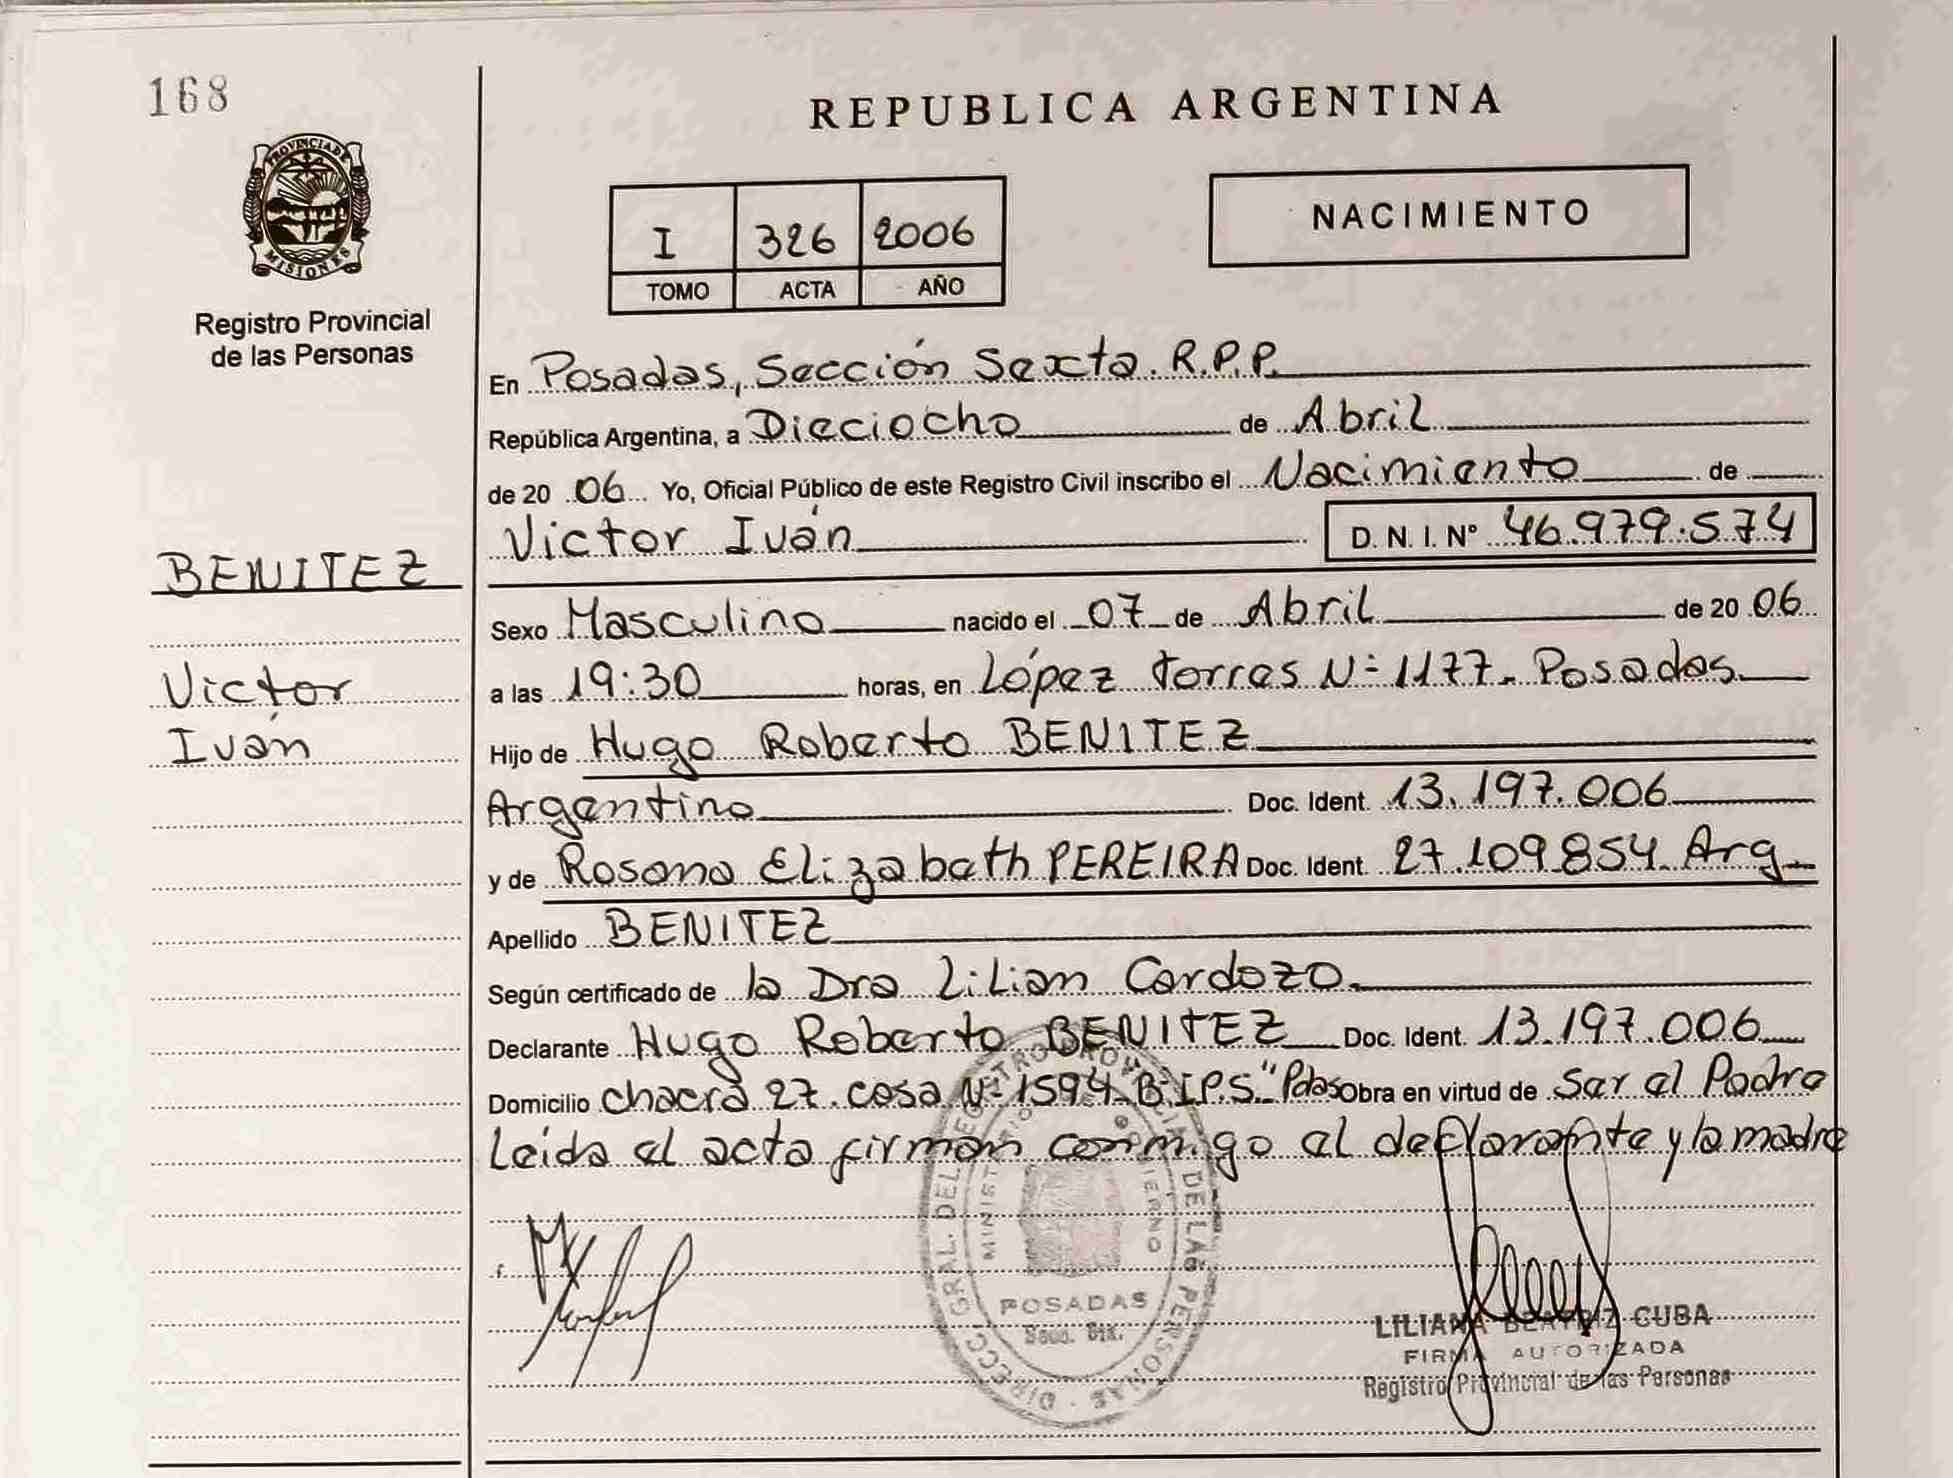 168
PROVINCIA DE
MISIONES
Registro Provincial
de las Personas
BENITEZ
Victor
Iván
REPUBLICA ARGENTINA
I 326 2006
TOMO ACTA AÑO
NACIMIENTO
En Posadas, Sección Sexta. R.P.P.
República Argentina, a Dieciocho de Abril
de 20 06 Yo, Oficial Público de este Registro Civil inscribo el Nacimiento de
Victor Iván D. N. I. Nº 46.979.574
Sexo Masculino nacido el 07 de Abril de 20 06
a las 19:30 horas, en López Torres Nº 1177. Posadas.
Hijo de Hugo Roberto BENITEZ
Argentino Doc. Ident. 13.197.006
y de Rosana Elizabeth PEREIRA Doc. Ident. 27.109.854 Arg.
Apellido BENITEZ
Según certificado de la Dra Lilian Cardozo.
Declarante Hugo Roberto BENITEZ Doc. Ident. 13.197.006
Domicilio chacra 27. casa Nº 1594 Bº I.P.S." Pdas Obra en virtud de Ser el Padre
Leída el acta firman conmigo el declarante y la madre
DIRECC. GRAL. DEL REGISTRO PROVINCIAL DE LAS PERSONAS
MINISTERIO GOBIERNO
POSADAS
Secc. 6ta.
LILIANA BEATRIZ CUBA
FIRMA AUTORIZADA
Registro Provincial de las Personas